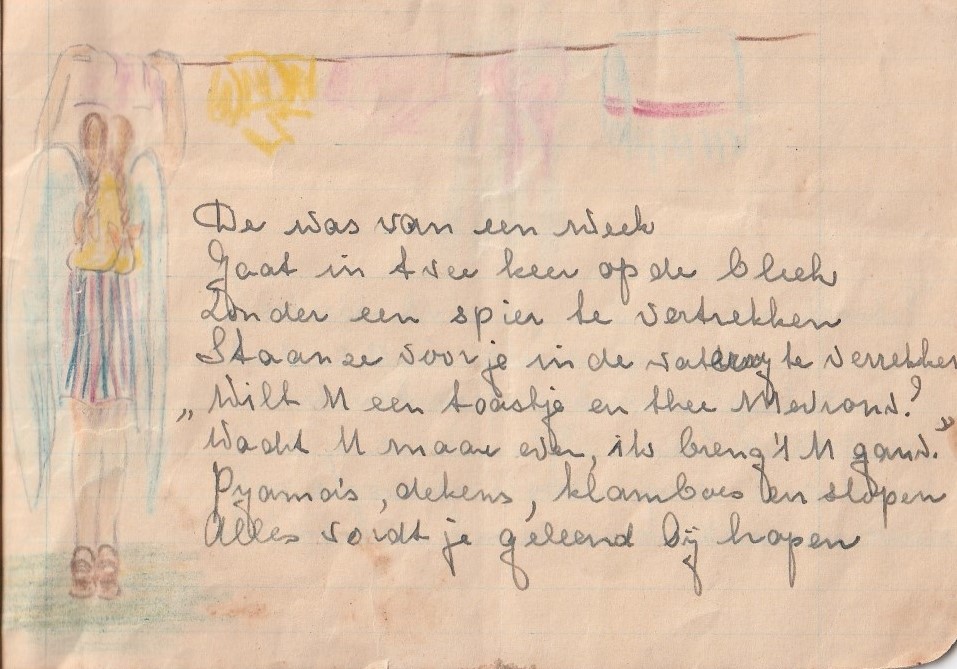 De was van een week
Gaat in twee keer op de bleek
Zonder een spier te vertrekken
Staan ze voor je in de te verrekken
„Wilt U een toastje en thee Mevrouw?
Wacht U maar even, ik breng 't U gauw."
Pyama's, dekens, klamboes en slopen
Alles wordt je geleend bij hopen